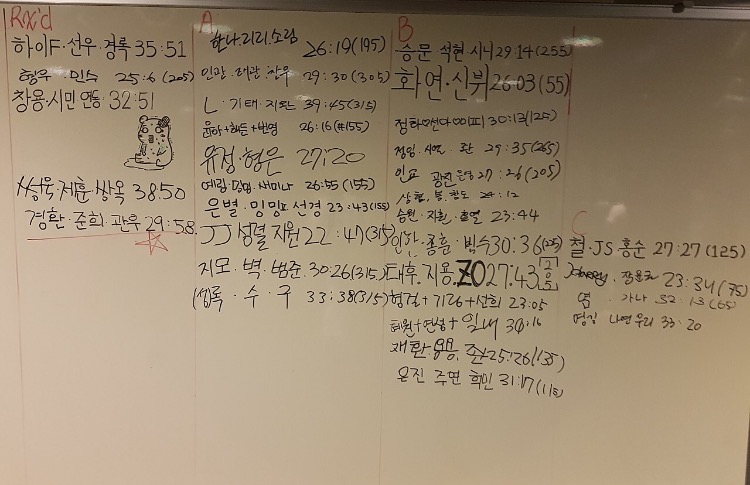 Rx'd
하이F·선우·경록 35:51
형우·민수 25:6 (205)
창용·시민 연동·32:51
성욱·제훈·쌍옥 38:50
경환·준희·관우 29:58
A
한나·리리·소림 26:19 (195)
인관·태관·찬우 29:30 (305)
L·기태·지토 39:45 (315)
윤아+하든+번영 26:16 (#155)
유정·형은 27:20
예림·밍밍·세미나 26:55 (155)
은별·밍밍프·선경 23:43 (155)
JJ 성렬 지원 22:47 (315)
지모·벽·범준·30:26 (315)
록·수·구 33:38 (315)
B
승문 석현 시니 29:14 (255)
화연·신뷔 26:03 (55)
정하♡선다♡♡피 30:13 (125)
정임·시연·란 29:35 (265)
인교 광진 27:26 (205)
상협, 봉, 창도 24:12
승원·지환 23:44
종훈·범수 30:36
태후·지용·ZO 27:43
형걸+기태+선희 23:05
혜원+연성+일내 30:16
재환 용용 준 25:26 (135)
은진 주연 혁민 31:17 (115)
C
철·JS 흥순 27:27 (125)
23:34 (75)
가나 32:13 (65)
나연 우리 33:20